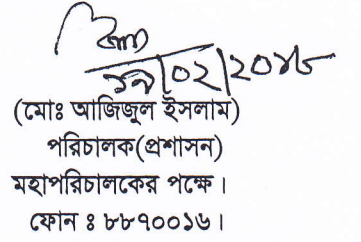 ১৯/০২/২০১৮
(মোঃ আজিজুল ইসলাম)
পরিচালক(প্রশাসন)
মহাপরিচালকের পক্ষে।
ফোন ঃ ৮৮৭০০১৬।